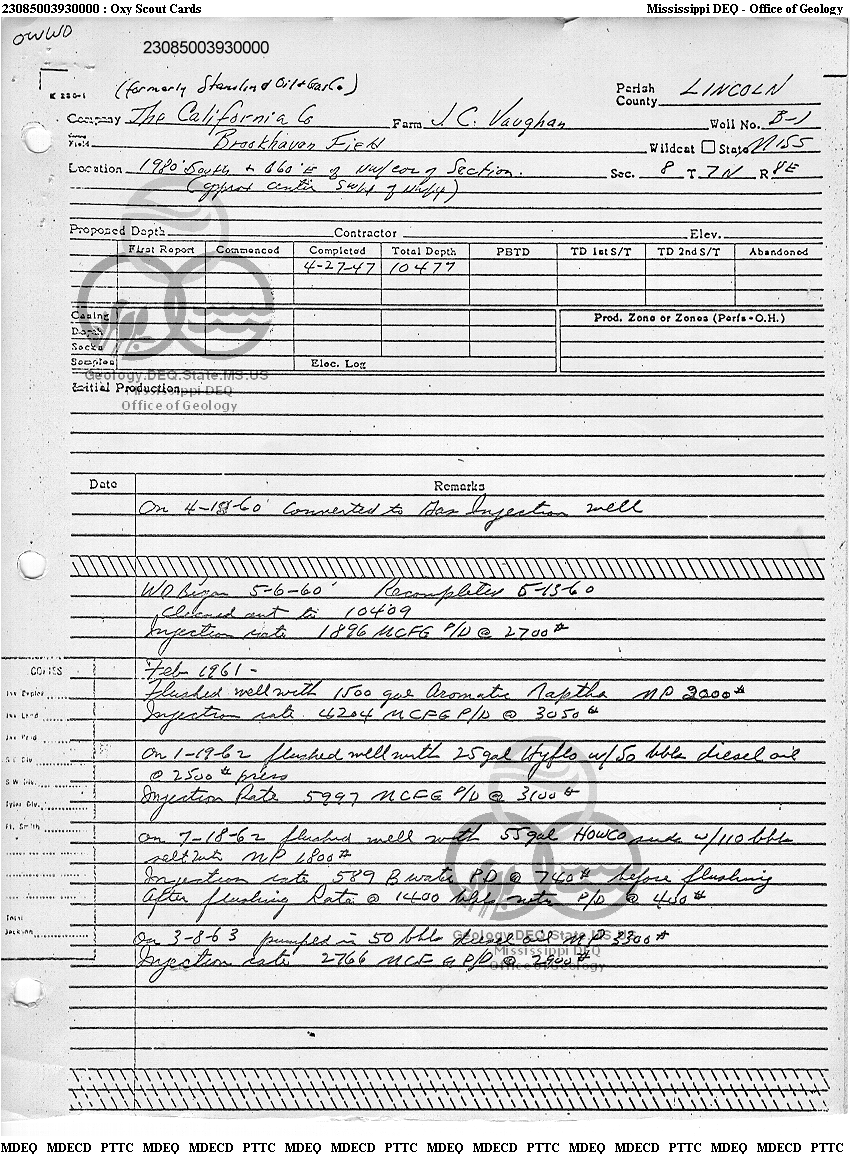 23085003930000 : Oxy Scout Cards Mississippi DEQ - Office of Geology
OWWO
23085003930000
(formerly Stanolind Oil + Gas Co)
Parish
County LINCOLN
Company The California Co Farm J.C. Vaughan Well No. B-1
Field Brookhaven Field Wildcat State MISS
Location 1980' South + 660' E of NW/cor of Section. Sec. 8 T 7N R 8E
(approx center SW/4 of NW/4)
Proposed Depth Contractor Elev.
First Report Commenced Completed Total Depth PBTD TD 1st S/T TD 2nd S/T Abandoned
4-27-47 10477
Casing Prod. Zone or Zones (Perfs - O.H.)
Depth
Sacks
Samples Elec. Log
Geology.DEQ.State.MS.US
Initial Production
Mississippi DEQ
Office of Geology
Date Remarks
On 4-18-60 converted to Gas Injection well
WO Began 5-6-60 Recompleted 5-13-60
Cleaned out to 10409
Injection rate 1896 MCFG P/D @ 2700#
COPIES
Feb 1961 -
Flushed well with 1500 gal Aromatic Naptha MP 2000#
Injection rate 4204 MCFG P/D @ 3050#
On 1-19-62 flushed well with 25 gal Hyflo w/50 bbls diesel oil
@ 2500# press
Injection Rate 5997 MCFG P/D @ 3100#
S.W. Div.
Tyler Div.
Ft. Smith
On 7-18-62 flushed well with 55 gal HOWCO w/110 bbls
salt wtr MP 1800#
Injection rate 589 B water PD @ 740# before flushing
After flushing Rate @ 1400 bbls P/D @ 400#
Jackson
Geology.DEQ.State.MS.US
On 3-8-63 pumped in 50 bbls diesel oil MP 3300#
Mississippi DEQ
Injection rate 2766 MCF G P/D @ 2900#
Office of Geology
MDEQ MDECD PTTC MDEQ MDECD PTTC MDEQ MDECD PTTC MDEQ MDECD PTTC MDEQ MDECD PTTC MDEQ MDECD PTTC